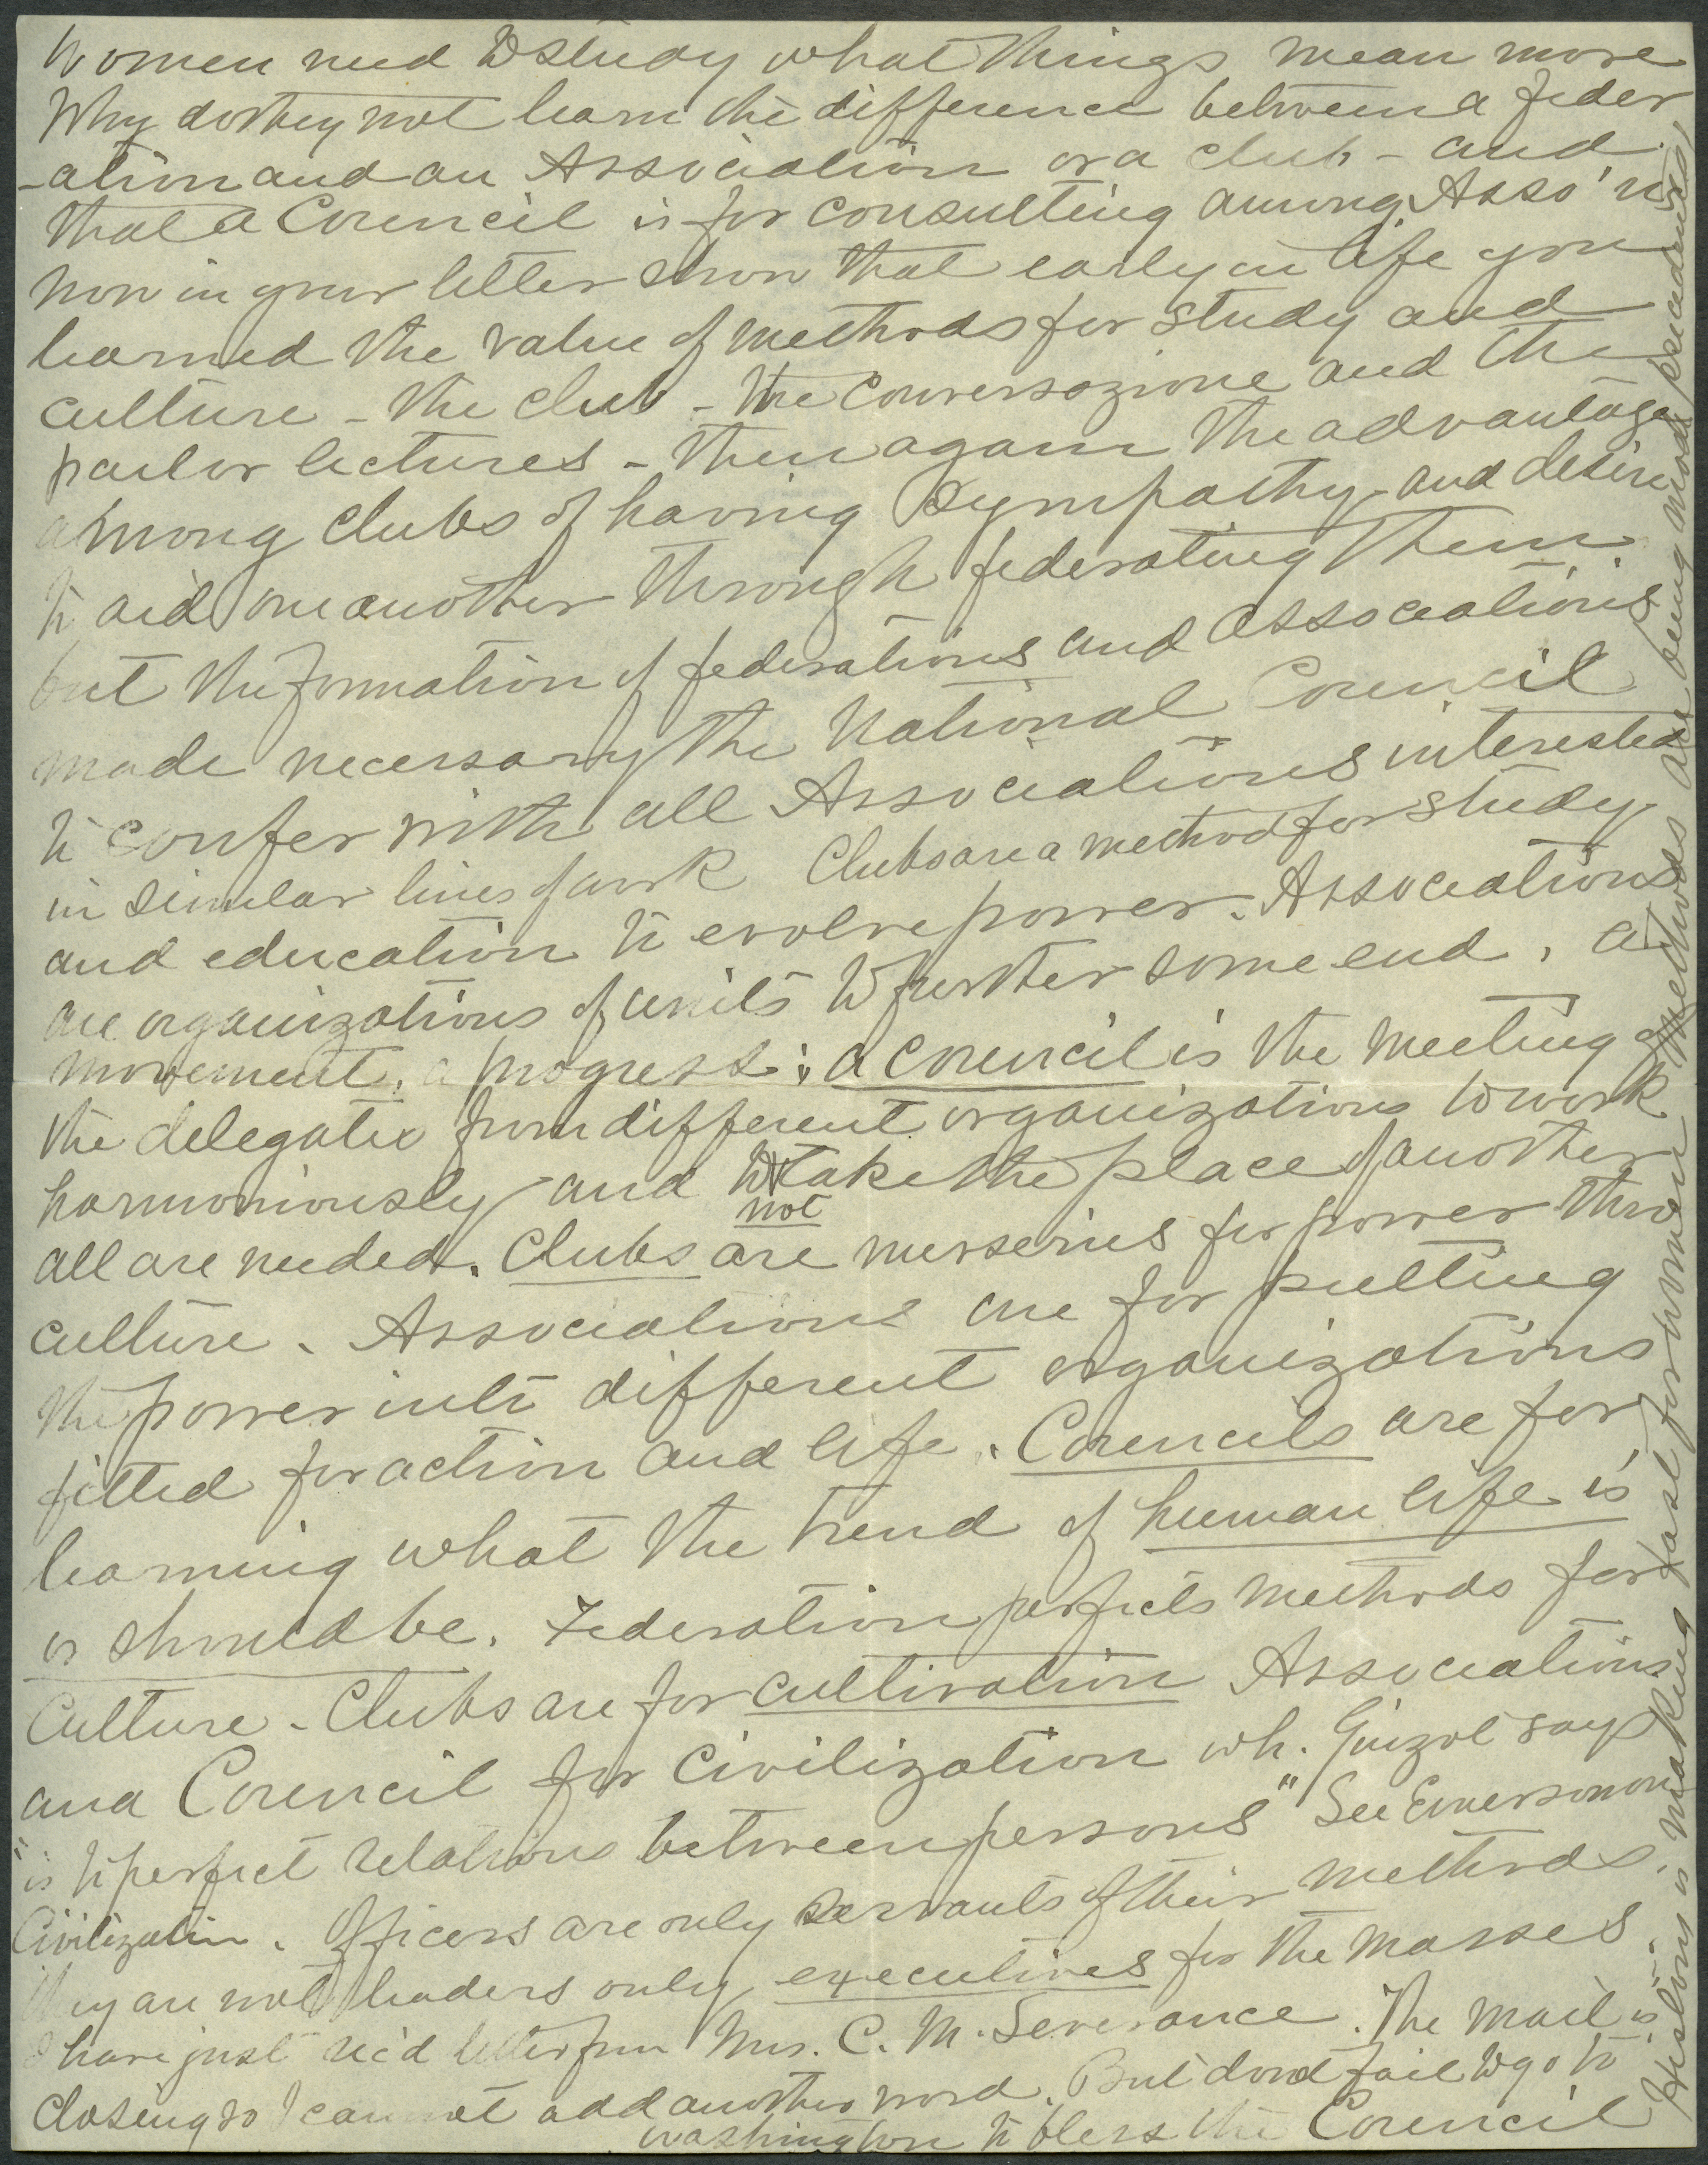 Women need to study what things mean more
Why do they not learn the difference between a feder
-ation and an Association or a club - and
that a Council is for consulting among Asso'ns
Now in your letter show that early in life you
learned the value of methods for study and
culture - the club - the Conversazione and the
parlor lectures - then again the advantage
among Clubs of having sympathy and desire
to aid one another through federating them.
but the formation of federations and associations
made necessary the National Council
to confer with all Associations interested
in similar lines of work Clubs are a method for study
and education to evolve power. Associations
are organizations of units to further some end, a
movement, a progress; a Council is the meeting of
the delegates from different organizations to work
harmoniously and to take the place of another
not
all are needed. Clubs are nurseries for power thro
culture. Associations are for putting
the power into different organizations
fitted for action and life. Councils are for
learning what the trend of human life is
or should be. Federation perfects methods for
Culture - Clubs are for cultivation Associations
and Council for Civilization wh. Guizot says
"is to perfect relations between persons" See Emerson on
Civilization. Officers are only servants of their methods.
They are not leaders only executives for the masses.
I have just rec'd letter from Mrs. C. M. Severance. The mail is
closing so I cannot add another word. But don't fail to go to
Washington to bless the Council
History is making fast for women methods are being made